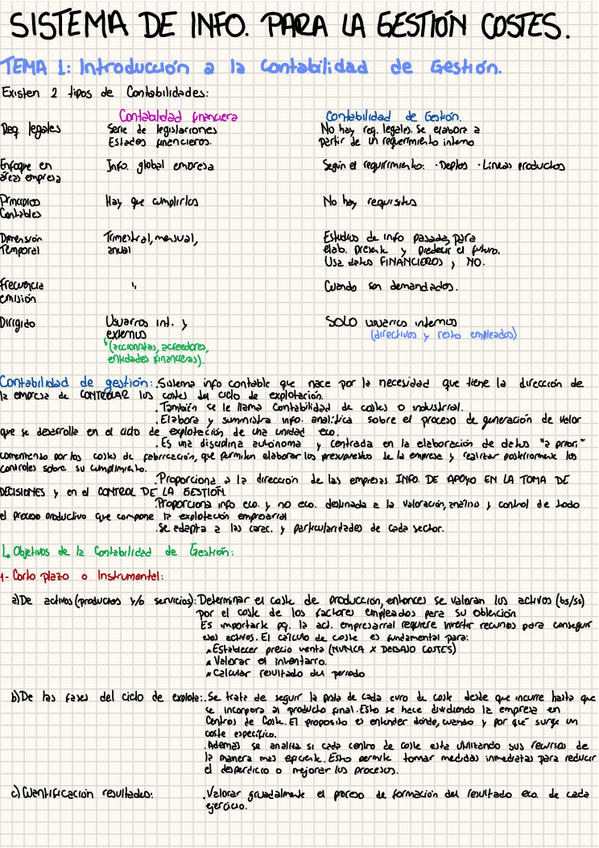 SISTEMA DE INFO. PARA LA GESTIÓN COSTES.
TEMA 1: Introducción a la Contabilidad de Gestión.
Existen 2 tipos de Contabilidades:
Contabilidad financiera Contabilidad de Gestión.
Req. legales Serie de legislaciones No hay req. legales. Se elabora a
Estados financieros. partir de un requerimiento interno
Enfoque en Info. global empresa Según el requirimiento: · Deptos · Lineas productos
áreas empresa
Principios Hay que cumplirlos No hay requisitos
Contables
Dimensión Trimestral, mensual, Estudios de info pasada, para
Temporal anual elab. presente y predecir el futuro.
Usa datos FINANCIEROS y NO.
Frecuencia " Cuando son demandados.
emisión
Dirigido Usuarios int. y SOLO usuarios internos
externos (directivos y resto empleados)
(accionistas, acreedores,
entidades financieras).
Contabilidad de gestión: . Sistema info contable que nace por la necesidad que tiene la dirección de
la empresa de CONTROLAR los costes del ciclo de explotación.
. También se le llama Contabilidad de costes o industrial.
. Elabora y suministra info. analítica sobre el proceso de generación de valor
que se desarrolla en el ciclo de explotación de una unidad eco.
. Es una disciplina autónoma y centrada en la elaboración de datos "a priori"
comenzando por los costes de fabricación, que permiten elaborar los presupuestos de la empresa y realizar posteriormente los
controles sobre su cumplimiento.
. Proporciona a la dirección de las empresas INFO. DE APOYO EN LA TOMA DE
DECISIONES y en el CONTROL DE LA GESTIÓN
. Proporciona info eco. y no eco. destinada a la valoración, análisis y control de todo
el proceso productivo que compone la explotación empresarial
. Se adapta a las carac. y particularidades de cada sector.
1. Objetivos de la Contabilidad de Gestión:
1- Corto plazo o Instrumental:
a) De activos (productos y/o servicios): Determinar el coste de producción, entonces se valoran los activos (bs/ss)
por el coste de los factores empleados para su obtención
Es importante pq. la act. empresarial requiere invertir recursos para conseguir
esos activos. El cálculo de coste es fundamental para:
Establecer precio venta (NUNCA X DEBAJO COSTES)
Valorar el inventario.
Calcular resultado del periodo
b) De las fases del ciclo de explota.: . Se trata de seguir la pista de cada euro de coste desde que incurre hasta que
se incorpora al producto final. Esto se hace dividiendo la empresa en
Centros de Coste. El proposito es entender dónde, cuando y por qué surge un
coste específico.
. Además se analiza si cada centro de coste está utilizando sus recursos de
la manera mas eficiente. Esto permite tomar medidas inmediatas para reducir
el desperdicio o mejorar los procesos.
c) Cuantificación resultados: . Valorar gradualmente el proceso de formación del resultado eco. de cada
ejercicio.